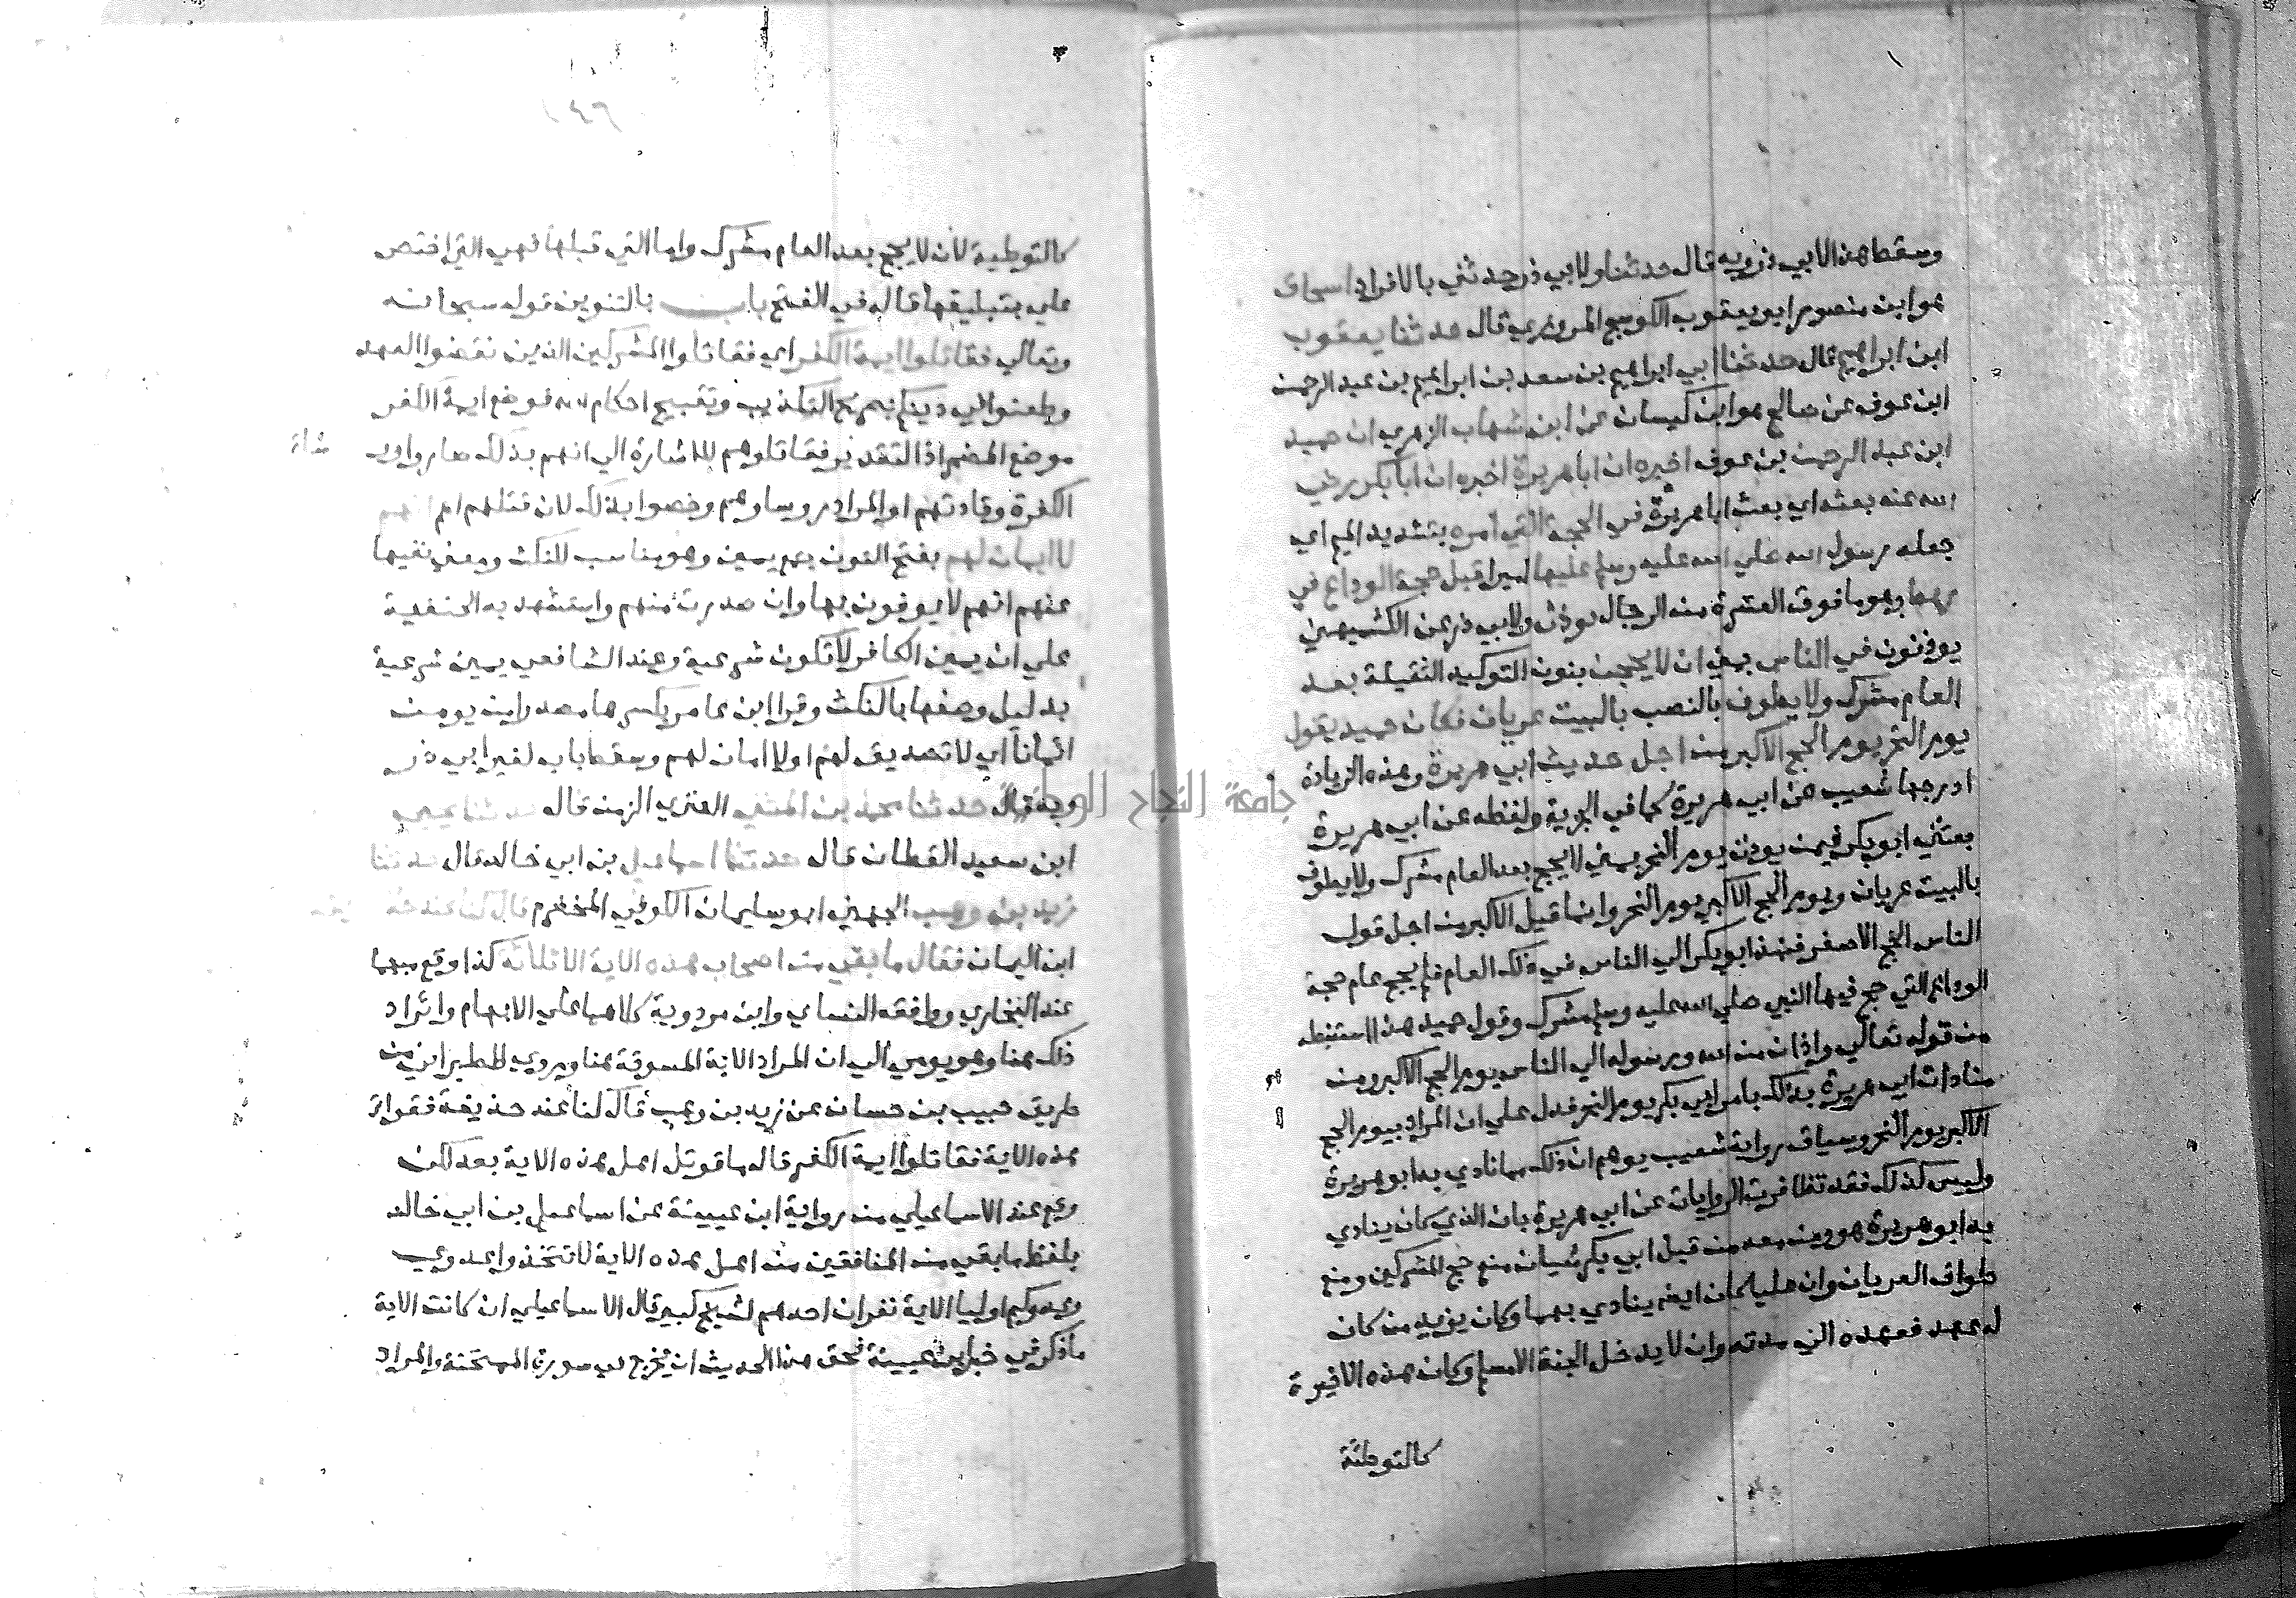 وسقط هذا لابي ذر وبه قال حدثنا ولابي ذر حدثني بالافراد اسحاق
هو ابن منصور ابو يعقوب الكوسج المروزي قال حدثنا يعقوب
ابن ابراهيم قال حدثنا ابي ابراهيم بن سعد بن ابراهيم بن عبد الرحمن
ابن عوف عن صالح هو ابن كيسان عن ابن شهاب الزهري ان حميد
ابن عبد الرحمن بن عوف اخبره ان ابا هريرة اخبره ان ابا بكر رضي
الله عنه بعثه اي بعث ابا هريرة في الحجة التي امره بتشديد الميم اي
جعله رسول الله صلي الله عليه وسلم عليها اميرا قبل حجة الوداع في
رهط وهو ما فوق العشرة من الرجال يوذن ولابي ذر عن الكشميهني
يوذنون في الناس بمني ان لا يحجن بنون التوكيد الثقيلة بعد
العام مشرك ولا يطوف بالنصب بالبيت عريان فكان حميد يقول
يوم النحر يوم الحج الاكبر من اجل حديث ابي هريرة وهذه الزيادة
ادرجها شعيب عن ابي هريرة كما في الجزية ولفظه عن ابي هريرة
بعثني ابو بكر فيمن يوذن يوم النحر بمني لا يحج بعد العام مشرك ولا يطوف
بالبيت عريان ويوم الحج الاكبر يوم النحر وانما قيل الاكبر من اجل قول
الناس الحج الاصغر فنبذ ابو بكر الي الناس في ذلك العام فلم يحج عام حجة
الوداع التي حج فيها النبي صلي الله عليه وسلم مشرك وقول حميد هذا استنبطه
من قوله تعالي واذان من الله ورسوله الي الناس يوم الحج الاكبر ومن
مناداة ابي هريرة بذلك بامر ابي بكر يوم النحر فدل علي ان المراد بيوم الحج
الاكبر يوم النحر وسياق رواية شعيب يوهم ان ذلك مما نادي به ابو هريرة
وليس كذلك فقد تظافرت الروايات عن ابي هريرة بان الذي كان ينادي
به ابو هريرة هو ومن معه من قبل ابي بكر شيان منع حج المشركين ومنع
طواف العريان وان عليا كان ايضا ينادي بهما وكان يزيد من كان
له عهد فعهده الي مدته وان لا يدخل الجنة الا مسلم وكان هذه الاخيرة
كالتوطئة
١٤٦
كالتوطية لان لا يحج بعد العام مشرك واما التي قبلها فهي التي اختص
علي بتبليغها قاله في الفتح باب بالتنوين قوله سبحانه
وتعالي فقاتلوا ايمة الكفر اي فقاتلوا المشركين الذين نقضوا العهد
وطعنوا في دينكم بصريح التكذيب وتقبيح احكام الله فوضع ايمة الكفر
موضع المضمر اذ التقدير فقاتلوهم للاشارة الي انهم بذلك صاروا
الكفرة وقادتهم او المراد روساوهم وخصوا بذلك لان قتلهم اهم انهم
لا ايمان لهم بفتح الهمزة جمع يمين وهو مناسب للنكث ومعني نفيها
عنهم انهم لا يوفون بها وان صدرت منهم واستشهد به الحنفية
علي ان يمين الكافر لا تكون شرعية وعند الشافعي يمين شرعية
بدليل وصفها بالنكث وقرا ابن عامر بكسرها مصدر امن يومن
ايمانا اي لا تصديق لهم او لا امان لهم وسقط باب لغير ابي ذر
وبه قال حدثنا محمد بن المثني العنزي الزمن قال حدثنا يحيي
ابن سعيد القطان قال حدثنا اسماعيل بن ابي خالد قال حدثنا
زيد بن وهب الجهني ابو سليمان الكوفي المخضرم قال كنا عند حذيفة
ابن اليمان فقال ما بقي من اصحاب هذه الاية الا ثلاثة كذا وقع مبهما
عند البخاري ووافقه النساي وابن مردوية كلاهما علي الابهام وايراد
ذلك هنا وهو يومي الي ان المراد الاية المسوقة هنا وروي الطبراني من
طريق حبيب بن حسان عن زيد بن وهب قال كنا عند حذيفة فقرا
هذه الاية فقاتلوا ايمة الكفر قال ما قوتل اهل هذه الاية بعد لكن
وقع عند الاسماعيلي من رواية ابن عيينة عن اسماعيل بن ابي خالد
بلفظ ما بقي من المنافقين من اهل هذه الاية لا تتخذوا عدوي
وعدوكم اوليا الاية نفر ان احدهم لشيخ كبير قال الاسماعيلي ان كانت الاية
ما ذكر في خبر ابن عيينة فحق هذا الحديث ان يخرج في سورة الممتحنة والمراد
جامعة النجاح الوطنية